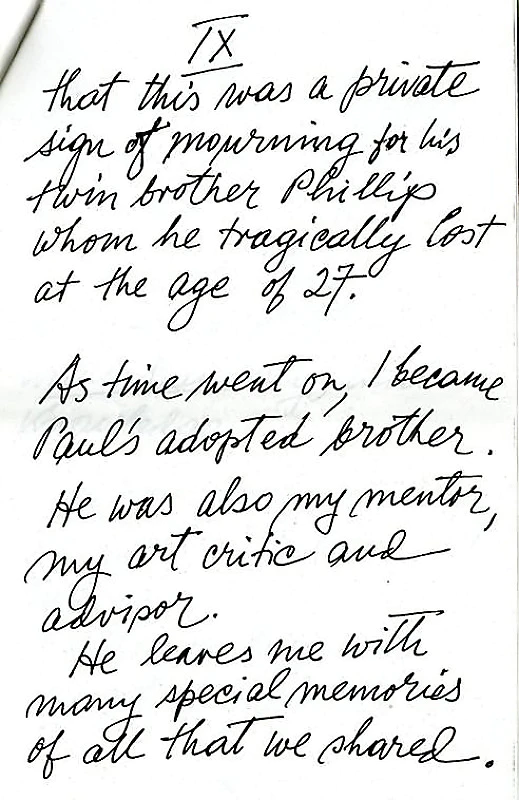 IX
that this was a private
sign of mourning for his
twin brother Phillip
whom he tragically lost
at the age of 27.
As time went on, I became
Paul's adopted brother.
He was also my mentor,
my art critic and
advisor.
He leaves me with
many special memories
of all that we shared.